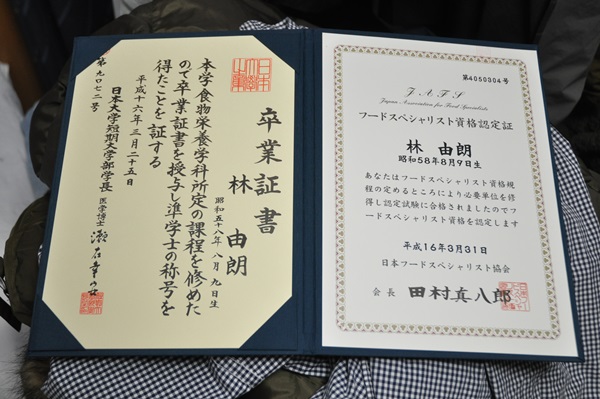 卒業証書
林 由朗
昭和五十八年 八月 九日生
本学食物栄養学科所定の課程を修めた
ので卒業証書を授与し準学士の称号を
得たことを証する
平成十六年三月二十五日
日本大学短期大学部学長
医学博士
第九〇七二号
第4050304号
J A F S
Japan Association for Food Specialists
フードスペシャリスト資格認定証
林 由朗
昭和58年8月9日生
あなたはフードスペシャリスト資格規
程の定めるところにより必要単位を修
得し認定試験に合格されましたのでフ
ードスペシャリスト資格を認定します
平成16年3月31日
日本フードスペシャリスト協会
会長 田村真八郎